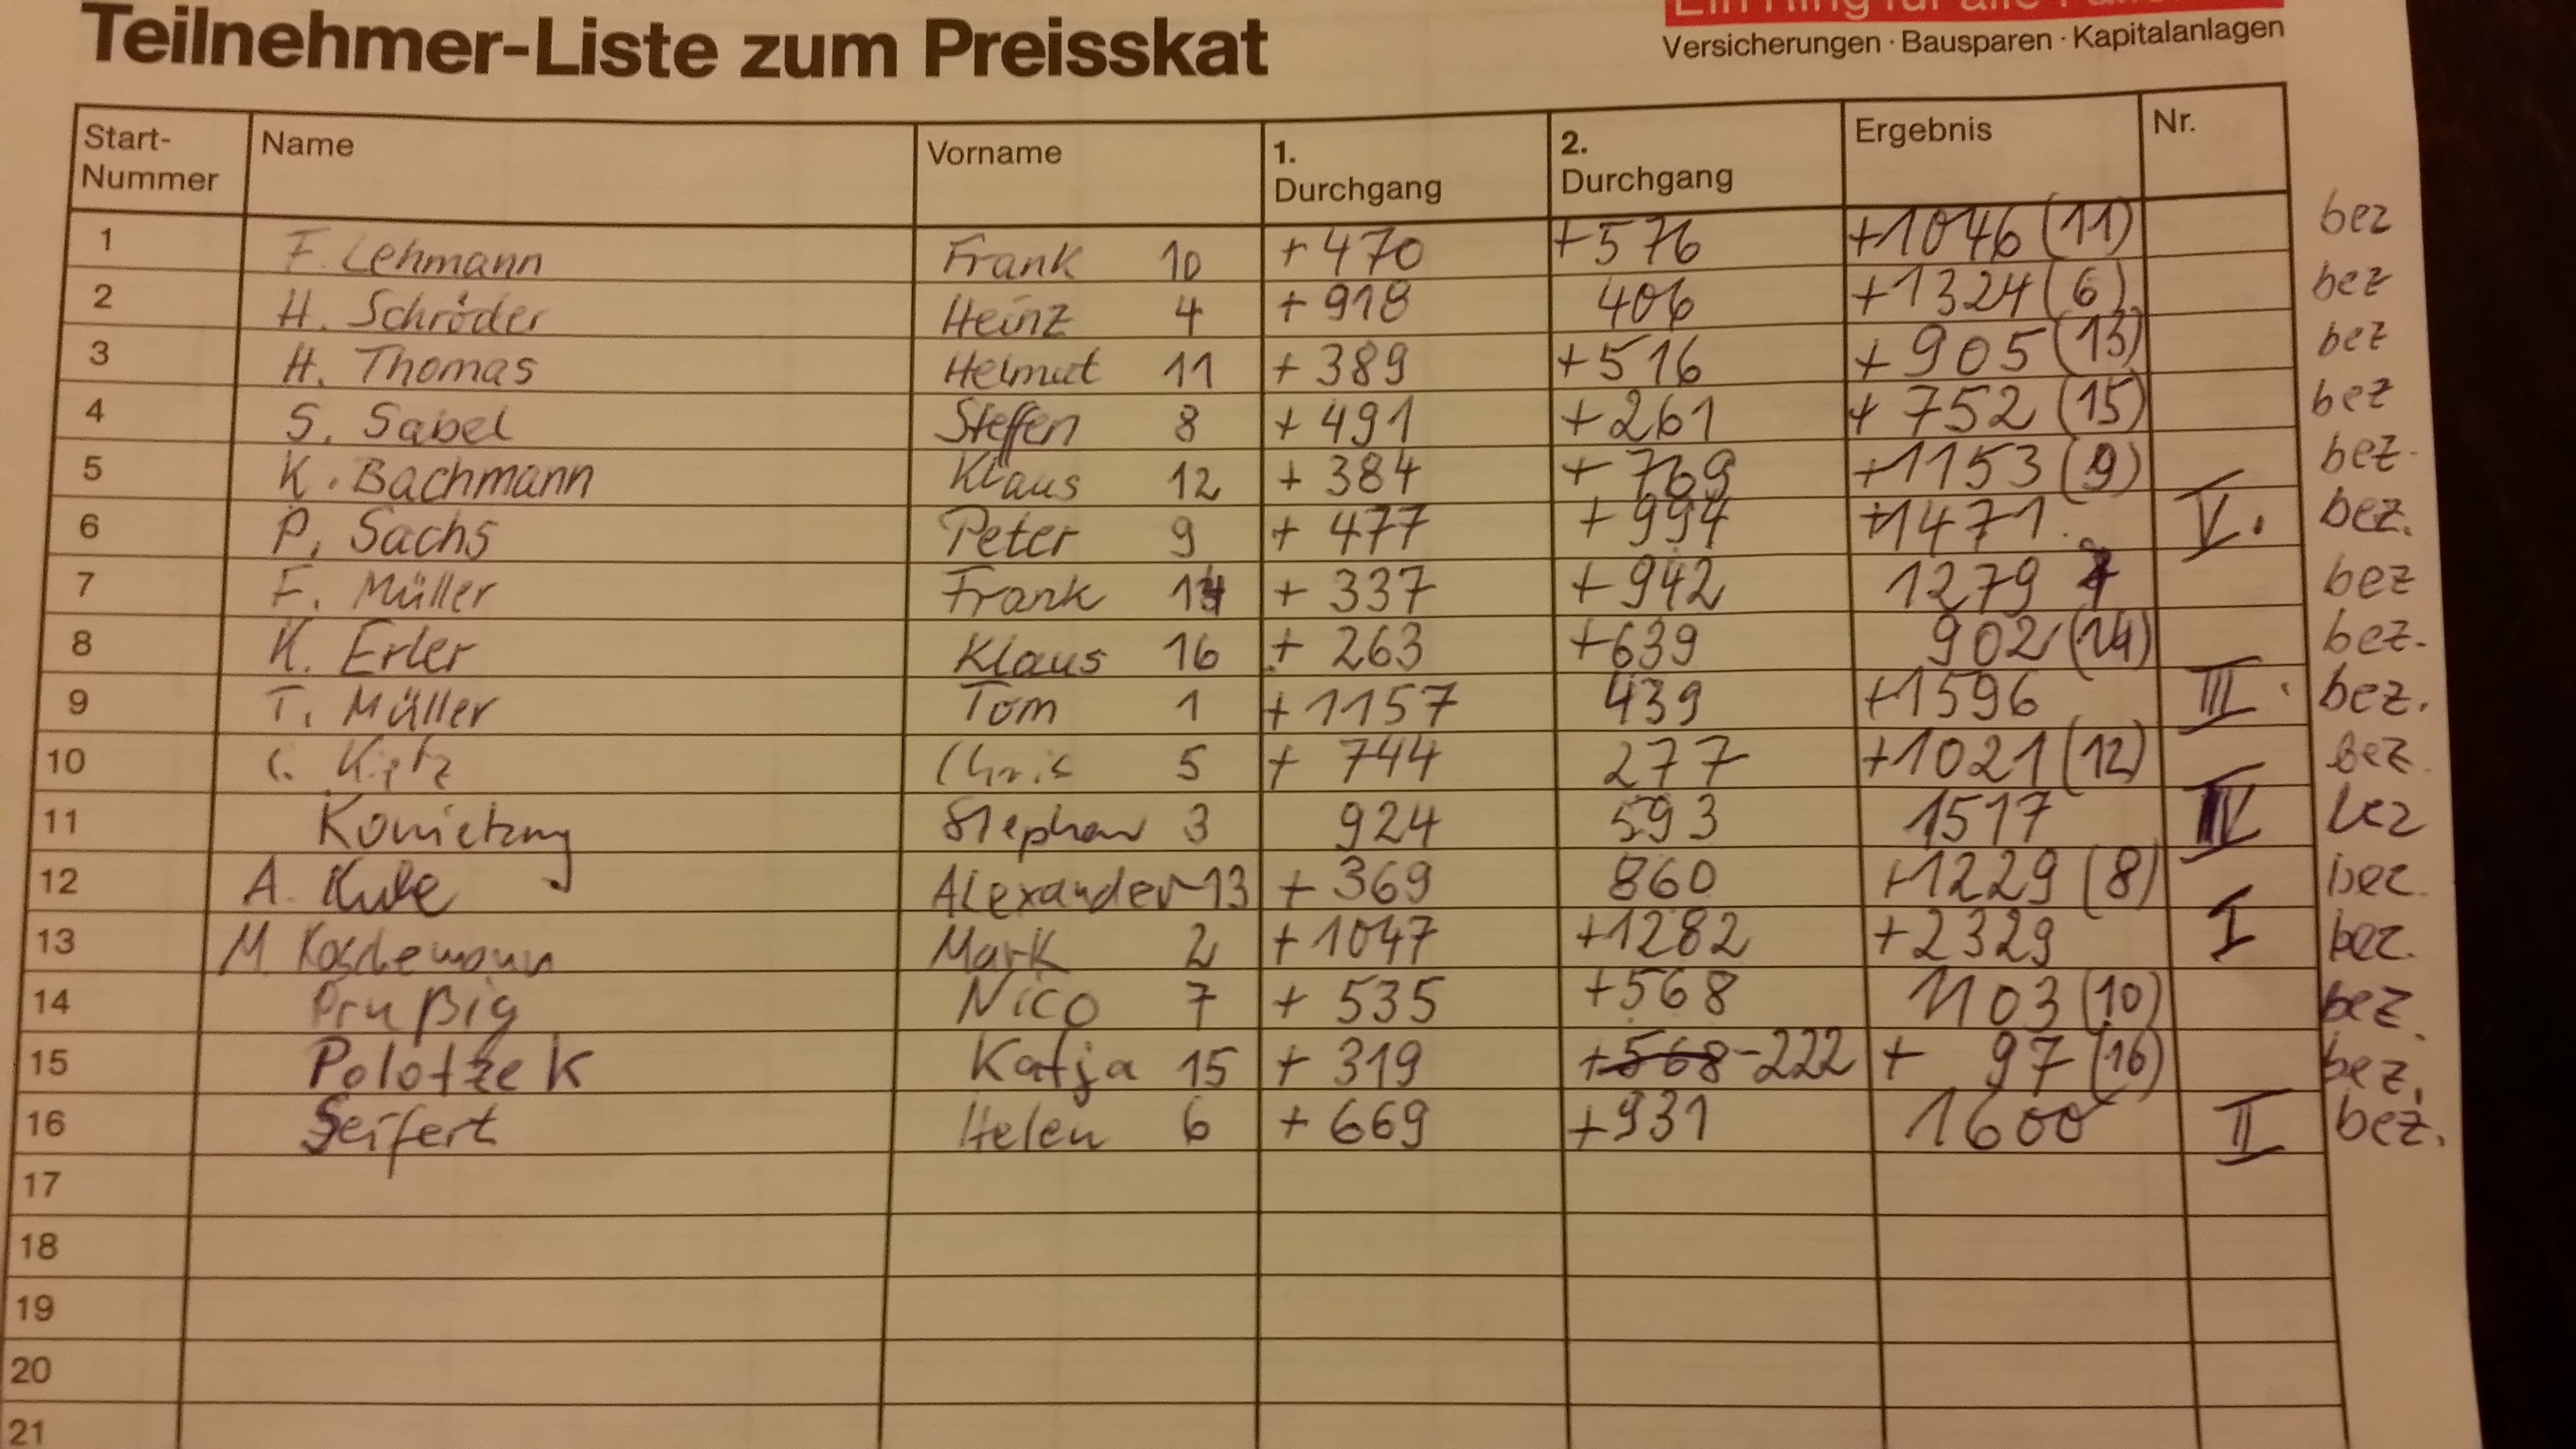 Teilnehmer-Liste zum Preisskat
Versicherungen · Bausparen · Kapitalanlagen
Start-Nummer Name Vorname 1. Durchgang 2. Durchgang Ergebnis Nr.
1 F. Lehmann Frank 10 +470 +576 +1046 (11) bez
2 H. Schröder Heinz 4 +918 406 +1324 (6) bez
3 H. Thomas Helmut 11 +389 +516 +905 (13) bez
4 S. Sabel Steffen 8 +491 +261 +752 (15) bez
5 K. Bachmann Klaus 12 +384 +769 +1153 (9) bez.
6 P. Sachs Peter 9 +477 +994 +1471 V. bez.
7 F. Müller Frank 14 +337 +942 1279 7 bez
8 K. Erler Klaus 16 +263 +639 902 (14) bez.
9 T. Müller Tom 1 +1157 439 +1596 III. bez.
10 C. Chris 5 +744 277 +1021 (12) bez.
11 Stephan 3 924 593 1517 IV bez
12 A. Kube Alexander 13 +369 860 +1229 (8) bez.
13 M. Mark 2 +1047 +1282 +2329 I bez.
14 Prußig Nico 7 +535 +568 1103 (10) bez.
15 Polotzek Katja 15 +319 +568 -222 + 97 (16) bez.
16 Seifert Helen 6 +669 +931 1600 II bez.
17
18
19
20
21